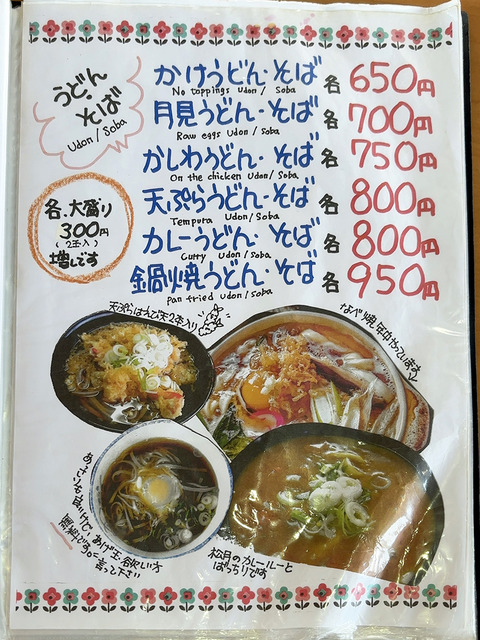 うどん
・そば
Udon / Soba
かけうどん・そば 各 650円
No toppings Udon / Soba
月見うどん・そば 各 700円
Raw eggs Udon / Soba
かしわうどん・そば 各 750円
On the chicken Udon / Soba
天ぷらうどん・そば 各 800円
Tempura Udon / Soba
カレーうどん・そば 各 800円
Curry Udon / Soba
鍋焼うどん・そば 各 950円
Pan fried udon / soba
各、大盛り
300円
(2玉入)
増しです
天ぷらはえび天2本入り
なべ焼年中やっています
あげ玉欲しい方
言って下さい
松月のカレールーと
ばっちりです